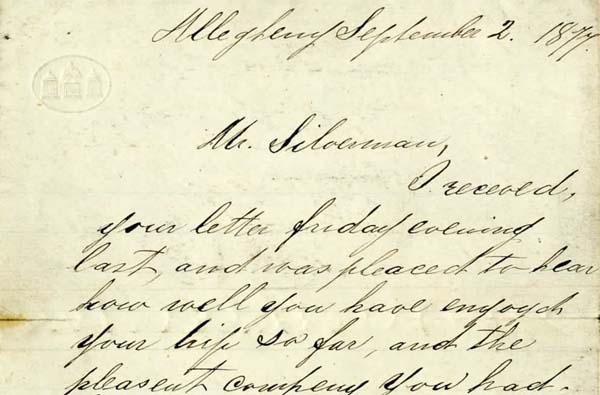 Allegheny September 2. 1877.
Mr. Silverman,
I receved,
your letter friday evening
last, and was pleaced to hear
how well you have engoyed
your trip so far, and the
pleasent compeny you had.